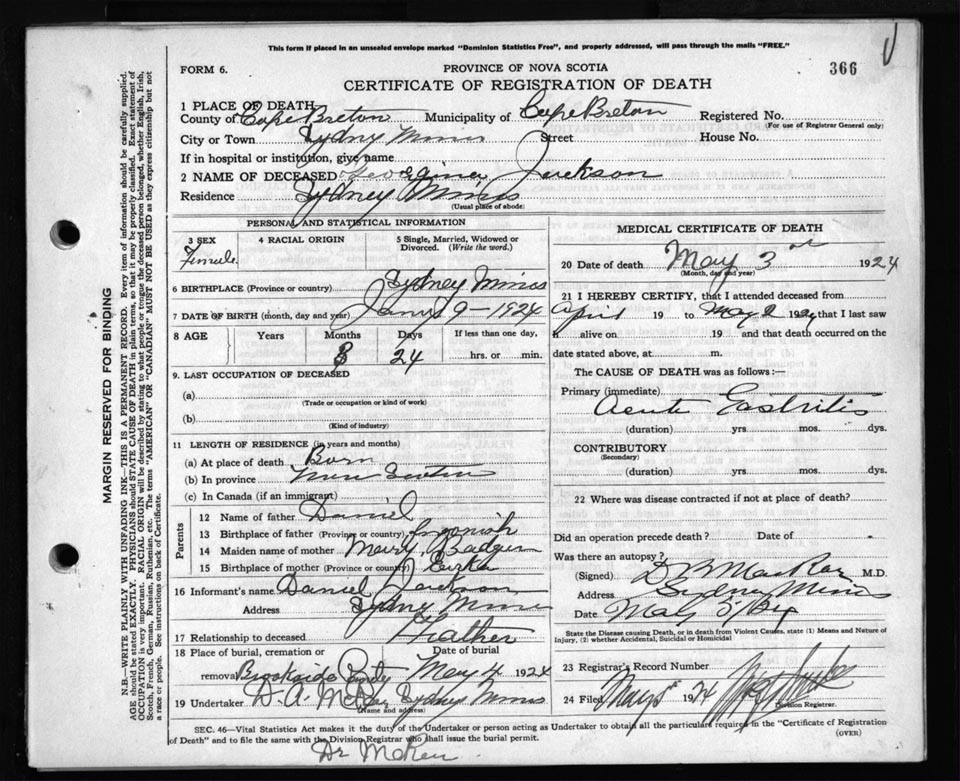 This form if placed in an unsealed envelope marked "Dominion Statistics Free", and properly addressed, will pass through the mails "FREE."
FORM 6.
PROVINCE OF NOVA SCOTIA
366
CERTIFICATE OF REGISTRATION OF DEATH
1 PLACE OF DEATH
County of Cape Breton Municipality of Cape Breton Registered No.
(For use of Registrar General only)
City or Town Sydney Mines Street House No.
If in hospital or institution, give name
2 NAME OF DECEASED Georgina Jackson
Residence Sydney Mines
(Usual place of abode)
PERSONAL AND STATISTICAL INFORMATION
3 SEX 4 RACIAL ORIGIN 5 Single, Married, Widowed or Divorced. (Write the word.)
Female
6 BIRTHPLACE (Province or country) Sydney Mines
7 DATE OF BIRTH (month, day and year) 9 - 1924
8 AGE Years Months Days If less than one day,
3 24 hrs. or min.
9. LAST OCCUPATION OF DECEASED
(a)
(Trade or occupation or kind of work)
(b)
(Kind of industry)
11 LENGTH OF RESIDENCE (in years and months)
(a) At place of death Born
(b) In province Nova Scotia
(c) In Canada (if an immigrant)
Parents
12 Name of father Daniel
13 Birthplace of father (Province or country) Ingonish
14 Maiden name of mother Mary
15 Birthplace of mother (Province or country)
16 Informant's name Daniel Jackson
Address Sydney Mines
17 Relationship to deceased Father
18 Place of burial, cremation or removal Brookside Date of burial May 4 1924
19 Undertaker D. A. Sydney Mines
(Name and address)
MEDICAL CERTIFICATE OF DEATH
20 Date of death May 3 1924
(Month, day and year)
21 I HEREBY CERTIFY, that I attended deceased from
April 19 to May 2 1924 that I last saw
h alive on 19 and that death occurred on the
date stated above, at m.
The CAUSE OF DEATH was as follows:—
Primary (immediate)
Acute Gastritis
(duration) yrs. mos. dys.
CONTRIBUTORY
(Secondary)
(duration) yrs. mos. dys.
22 Where was disease contracted if not at place of death?
Did an operation precede death? Date of
Was there an autopsy?
(Signed) D B M.D.
Address Sydney Mines
Date May 5/24
State the Disease causing Death, or in death from Violent Causes, state (1) Means and Nature of Injury, (2) whether Accidental, Suicidal or Homicidal
23 Registrar's Record Number
24 Filed May 5 1924
Division Registrar.
SEC. 46—Vital Statistics Act makes it the duty of the Undertaker or person acting as Undertaker to obtain all the particulars required in the "Certificate of Registration
of Death" and to file the same with the Division Registrar who shall issue the burial permit.
(OVER)
Dr
MARGIN RESERVED FOR BINDING
N.B.—WRITE PLAINLY WITH UNFADING INK—THIS IS A PERMANENT RECORD. Every item of information should be carefully supplied.
AGE should be stated EXACTLY. PHYSICIANS should STATE CAUSE OF DEATH in plain terms, so that it may be properly classified. Exact statement of
OCCUPATION is very important. RACIAL ORIGIN will be described by stating to what people or tongue the deceased person belonged, whether English, Irish,
Scotch, French, German, Russian, Ruthenian, etc. The terms "AMERICAN" or "CANADIAN" MUST NOT BE USED as they express citizenship but not
a race or people. See instructions on back of Certificate.